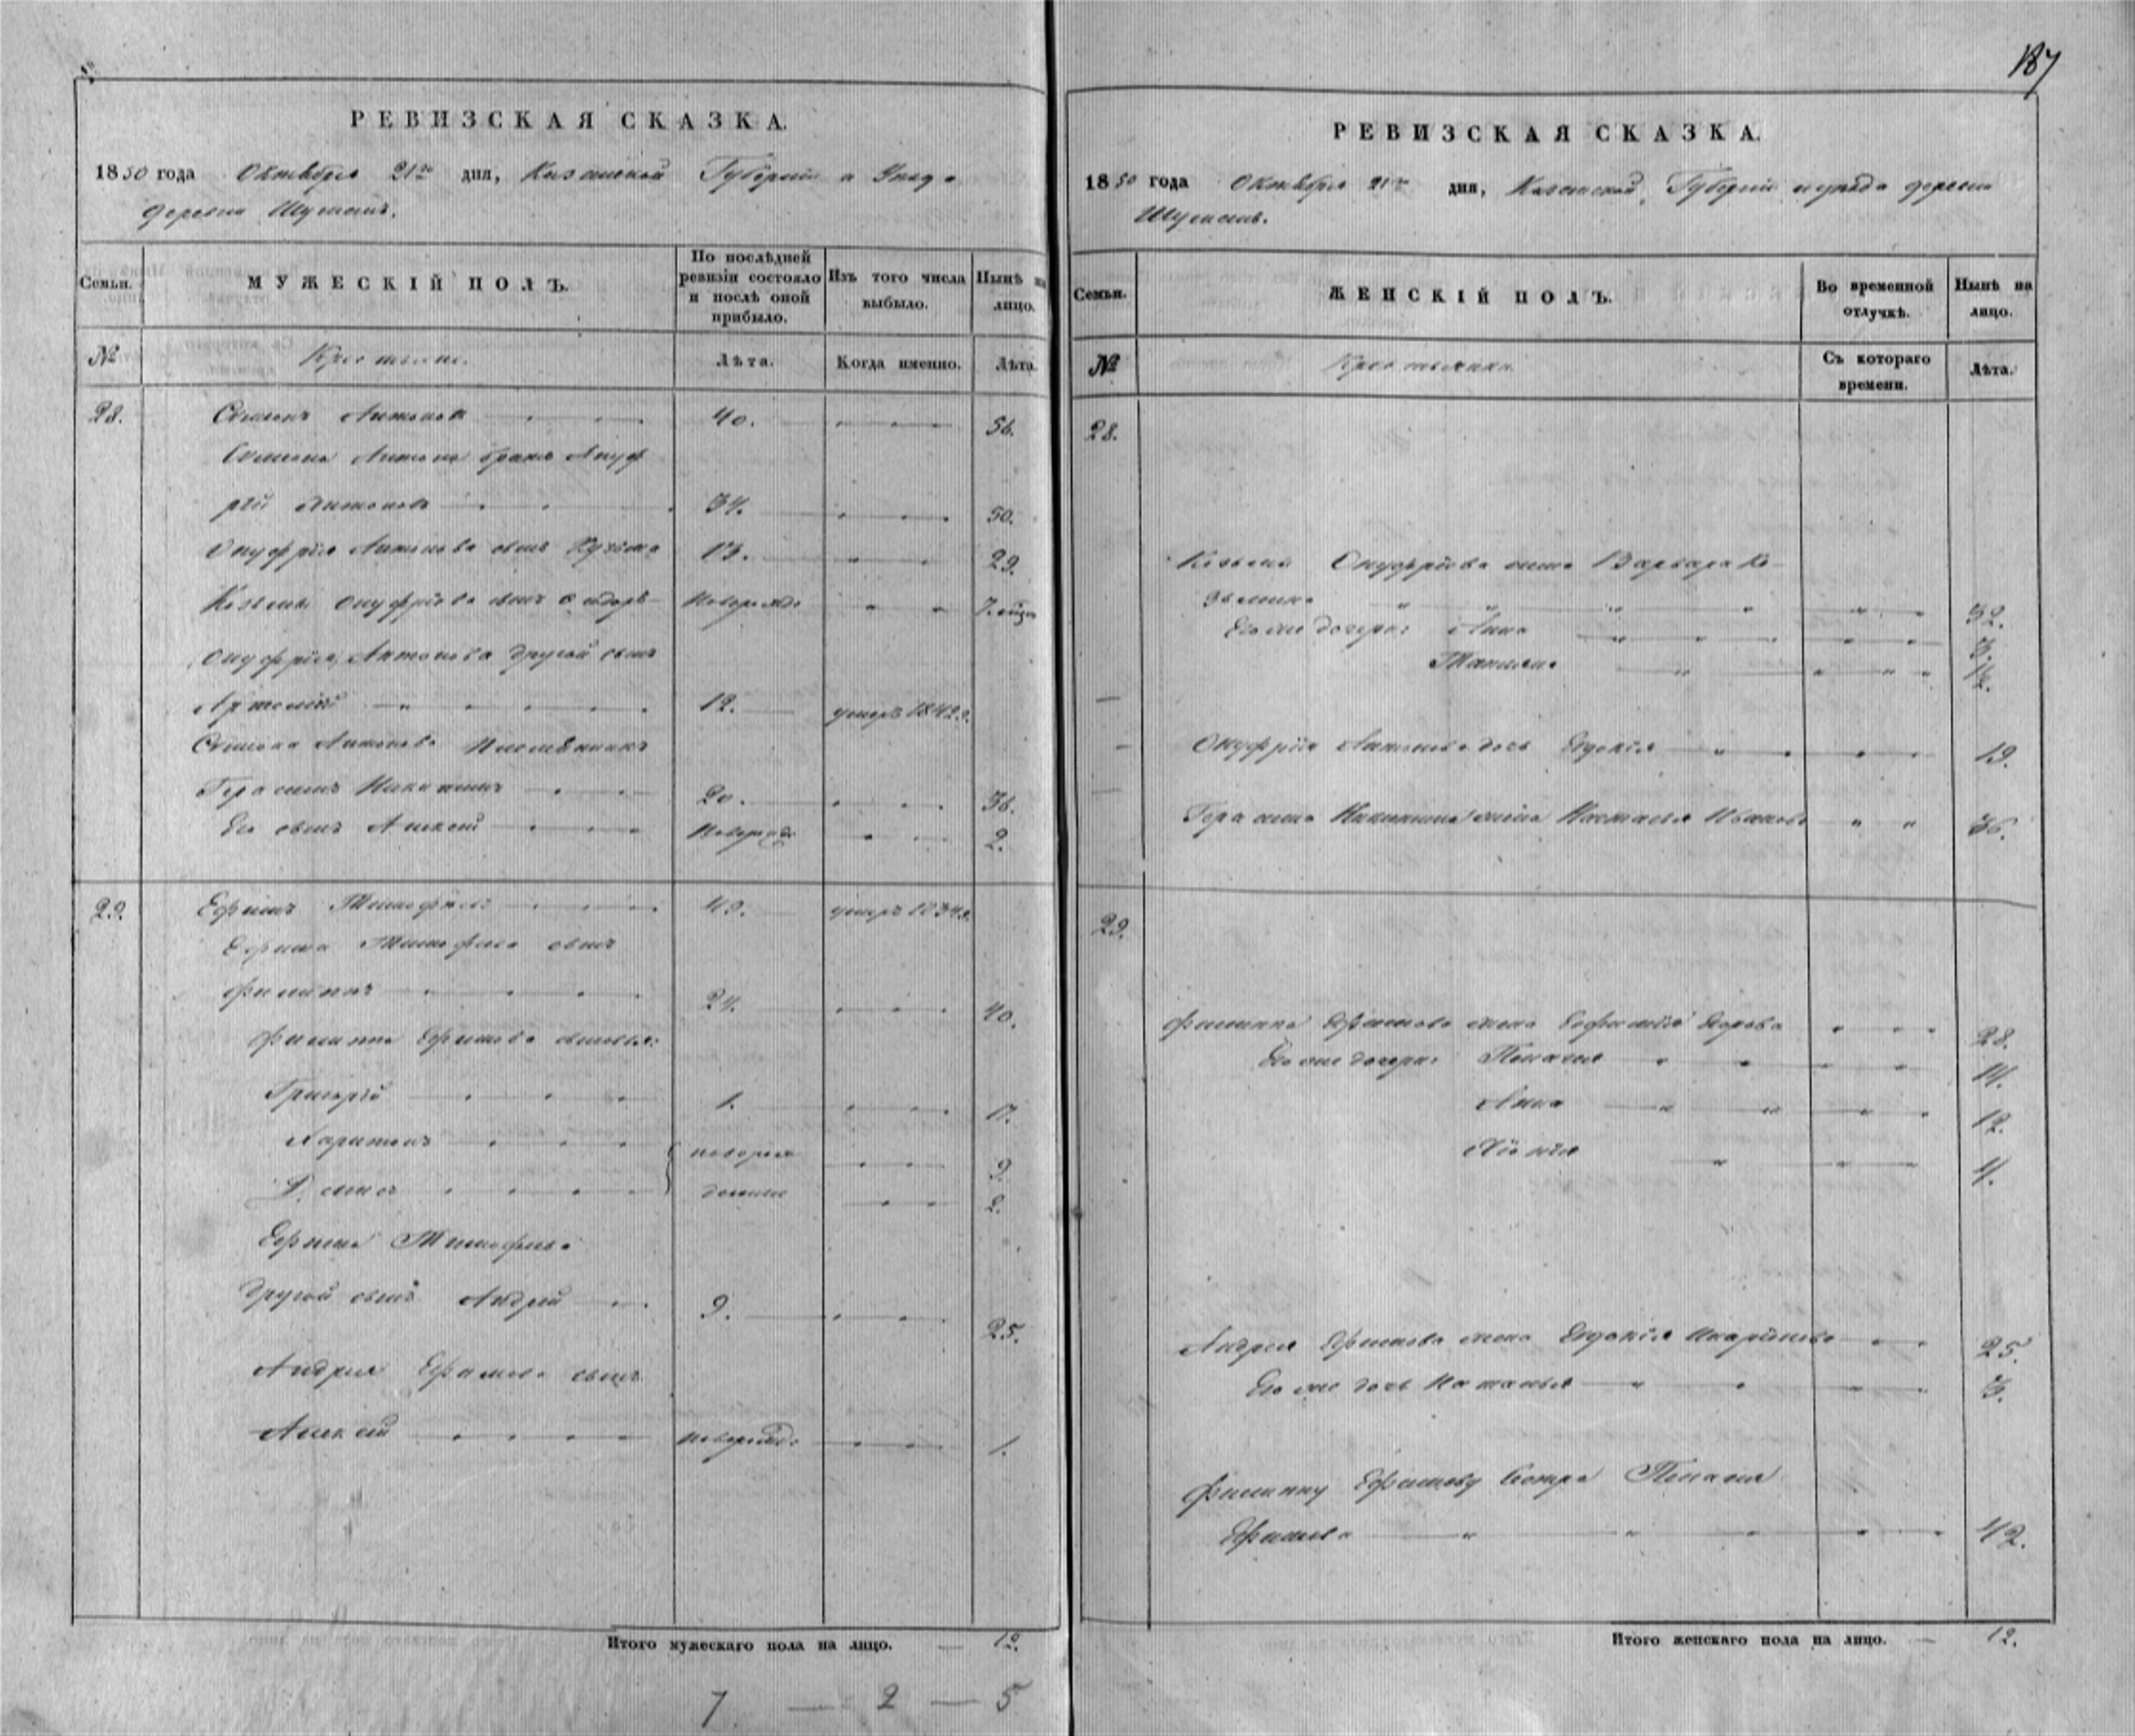 187
РЕВИЗСКАЯ СКАЗКА.
1850 года Октября 21го дня, Казанской Губернии и Уезда
деревни Шумани.
Семьи.
МУЖЕСКІЙ ПОЛЪ.
По послѣдней ревизіи состояло и послѣ оной прибыло.
Изъ того числа выбыло.
Нынѣ на лицо.
№
Крестьяне.
Лѣта.
Когда именно.
Лѣта.
28.
Семенъ Антоновъ 40. 56.
Семена Антонова братъ Ануф
рій Антоновъ 34. 50.
Онуфрія Антонова сынъ Кузьма 13. 29.
Козьмы Онуфріева сынъ новорожд. 7.
Онуфрія Антонова другой сынъ
Артемій 12. умеръ 1842 г.
Семена Антонова племянникъ
Герасимъ Никитинъ 20. 36.
Его сынъ Алексей новорожд. 2.
29.
Ефимъ Тимофеевъ 49. умеръ 1834 г.
Ефима Тимофеева сынъ
Филиппъ 24. 40.
Филиппа Ефимова сыновья:
Григорій 1. 17.
Харитонъ новорож 9.
денные 2.
Ефима Тимофеева
другой сынъ Андрей 9. 25.
Андрея Ефимова сынъ
Алексей новорожд. 1.
Итого мужескаго пола на лицо. 12.
7 — 2 — 5
РЕВИЗСКАЯ СКАЗКА.
1850 года Октября 21го дня, Казанской Губерніи и уезда деревни
Шумани.
Семьи.
ЖЕНСКІЙ ПОЛЪ.
Во временной отлучкѣ.
Нынѣ на лицо.
№
Крестьянки.
Съ котораго времени.
Лѣта.
28.
Козьмы Онуфріева жена Варвара Ко
зьмина 32.
Его же дочери: Анна 3.
Татьяна 1/2.
Онуфрія Антонова дочь Евдокія 19.
Герасима Никитина жена Настасья Иванова 36.
29.
Филиппа Ефимова жена Ефимія Егорова 38.
Его же дочери: Пелагея 14.
Анна 12.
4.
Андрея Ефимова жена Евдокія 25.
Его же дочь Наталья 3.
Филиппу Ефимову сестра Пелагея
Ефимова 42.
Итого женскаго пола на лицо. 12.